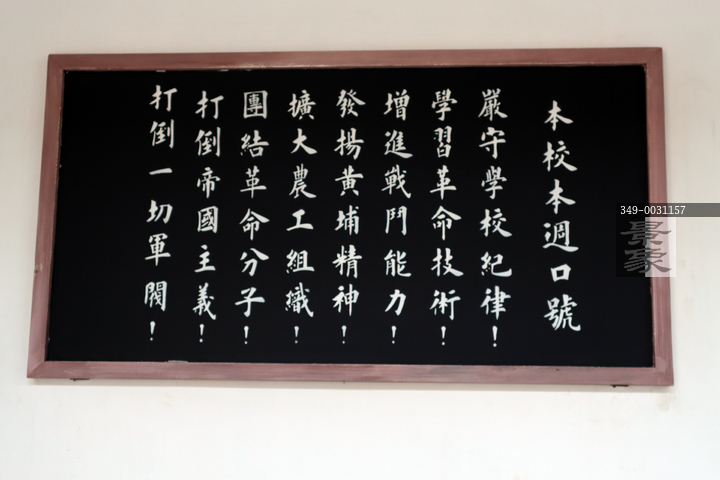 本校本週口號
嚴守學校紀律！
學習革命技術！
增進戰鬥能力！
發揚黃埔精神！
擴大農工組織！
團結革命分子！
打倒帝國主義！
打倒一切軍閥！
349-0031157
景象